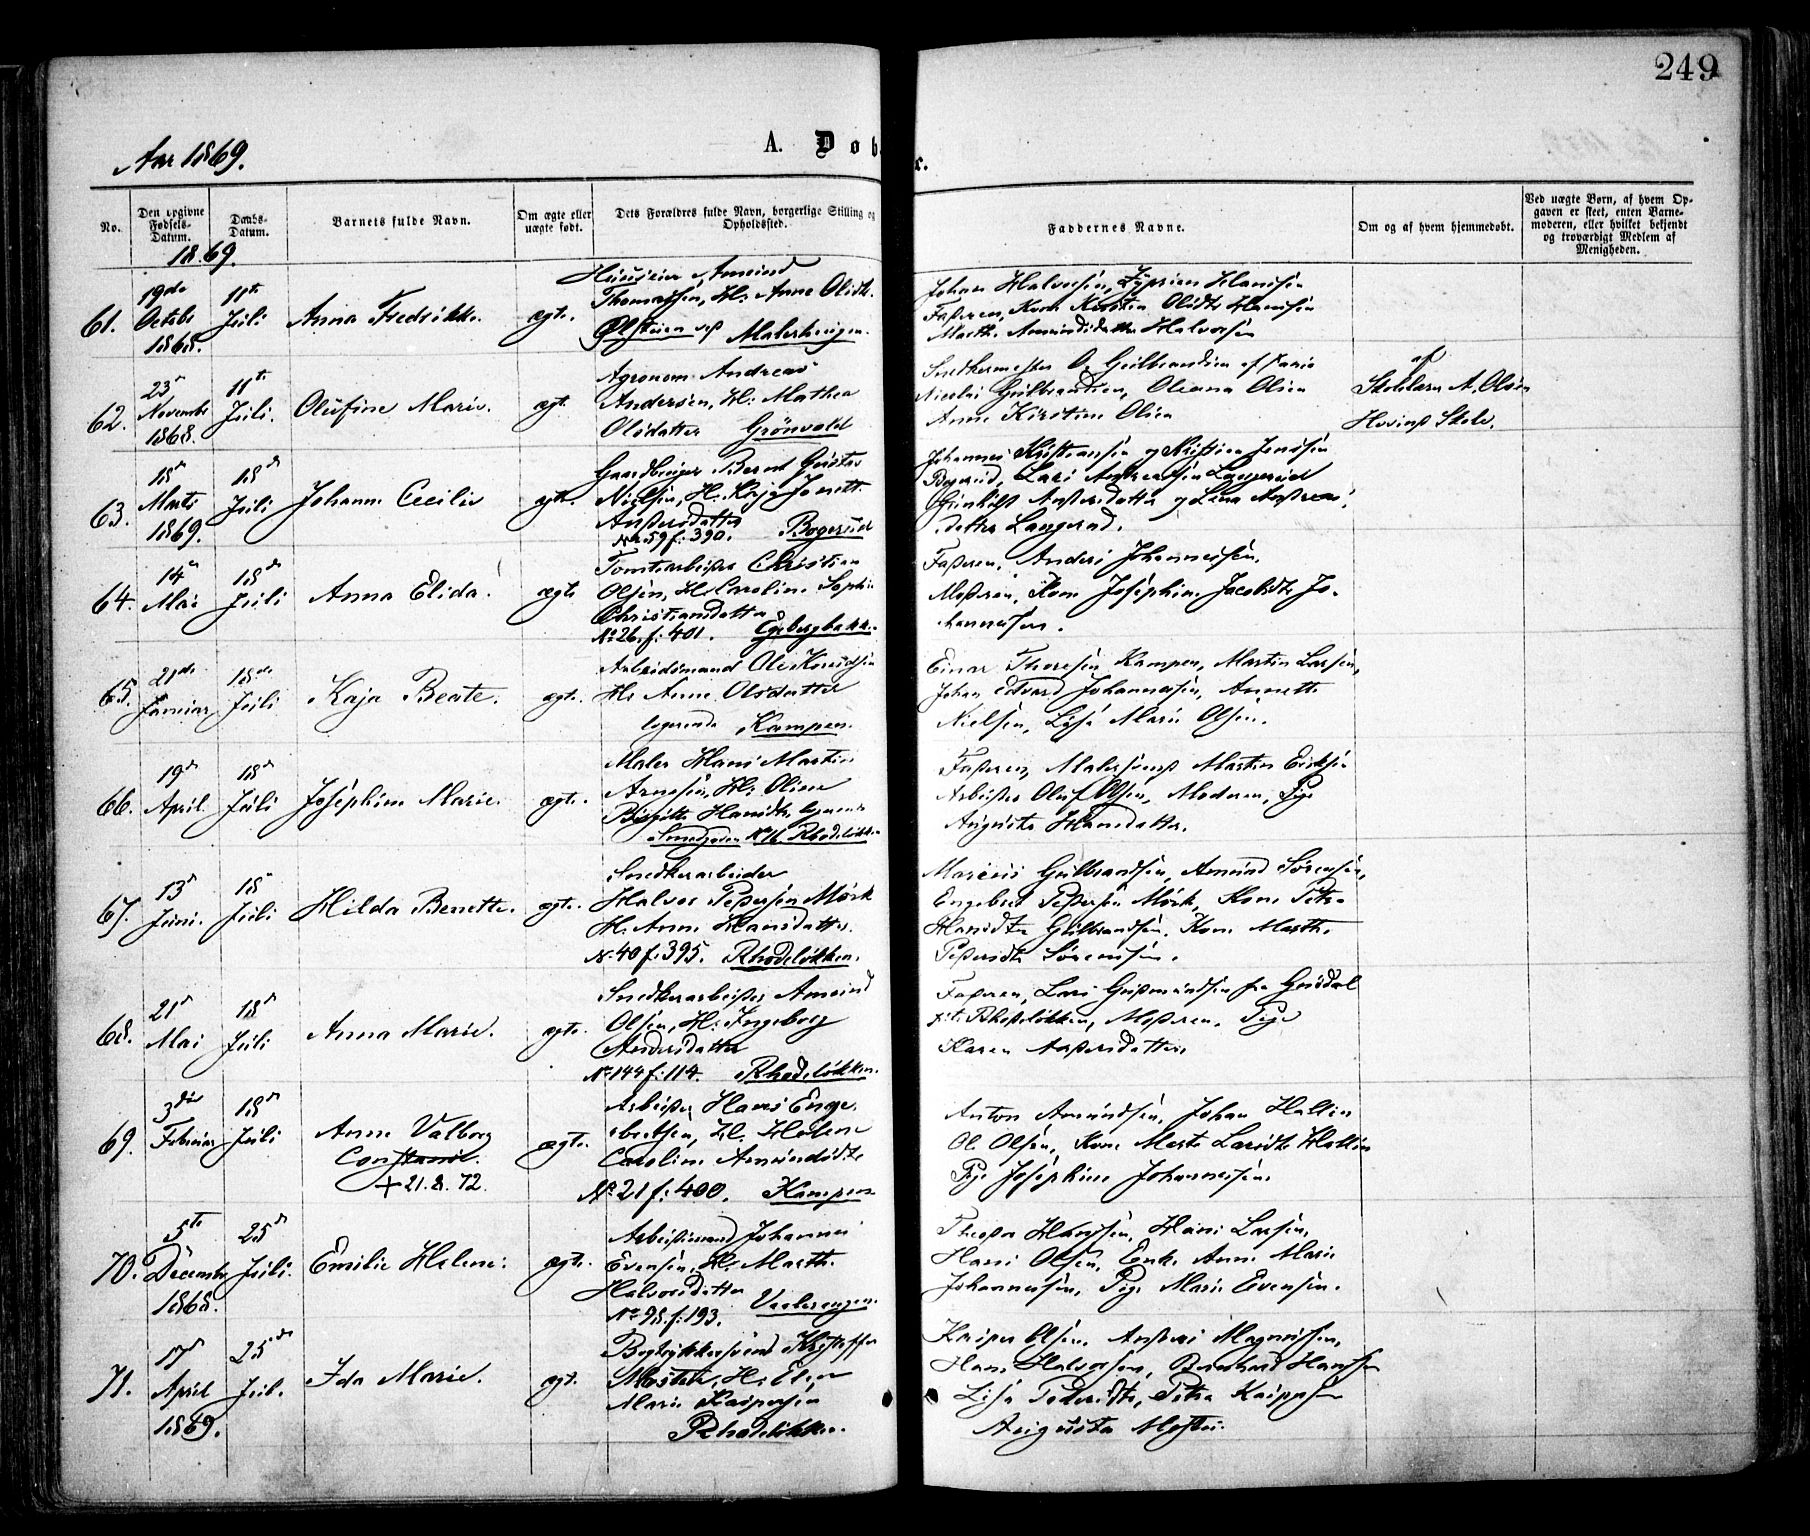 249
Aar 1869.
A. Døbte.
No.
Den opgivne Fødsels-Datum.
Daabs-Datum.
Barnets fulde Navn.
Om ægte eller uægte født.
Dets Forældres fulde Navn, borgerlige Stilling og Opholdssted.
Faddernes Navne.
Om og af hvem hjemmedøbt.
Ved uægte Børn, af hvem Op-
gaven er skeet, enten Barne-
moderen, eller hvilket bekjendt
og troværdigt Medlem af
Menigheden.
1869.
61.
19de
Octobr
1868.
11te
Juli
Anna Fredrikke.
ægte.
Huuseier Amund
Thomassen, H: Anne Olsdtr.
Malerhaugen.
Johan Halvorsen, Hansen
Faderen, Kone Kirsten Olsdtr Hansen
Marthe Amundsdatter Halvorsen
62.
23d
Novembr
1868.
11te
Juli.
Olufine Marie.
ægt.
Agronom Andreas
Andersen, H: Mathea
Olsdatter Grönvold
Snedkermester O. Gulbrandsen
Nicolai Gulbrandsen, Oleana Olsen
Anne Kirstine Olsen
af
Skolelærer A. Olsen
Hovinds Skole.
63.
18d
Marts
1869.
18d
Juli
Johanne Cecilie
ægt.
Gaardbruger Bernt Gustav
Nielsen, H: Kaja Janette
Andersdatter
No 59 f: 390. Bogerud
Johannes Kristiansen og Kristian Jensen
Bogerud, Lars Andreassen Langerud
Gunhild Andersdatter og Lena Anders-
datter Langerud.
64.
14d
Mai
18d
Juli
Anna Elida.
ægte
Tomtearbeider Christian
Olsen, H: Caroline Sophie
Christiansdatter
No 26. f: 401. Egebergbakke.
Faderen, Anders Johannesen.
Moderen, Kone Josephine Jacobsdtr Jo-
hannesen.
65.
21de
Januar
18de
Juli
Kaja Beate.
ægte.
Arbeidsmand Ole Knudsen
H: Anne Olsdatter
logerende Kampen.
Einar Thoresen Kampen, Martin Larsen,
Johan Edvard Johannesen, Annette
Nielsen, Lise Marie Olsen.
66.
19d
April.
18d
Juli
Josephine Marie.
ægte.
Maler Hans Martin
Arnesen, H: Oline
Birgitte Hansdtr,
Smedgaden No 16 Rhodeløkken
Faderen, Malersvend Martin Eriksen
Arbeider Oluf Olsen, Moderen, Pige
Augusta Hansdatter.
67.
13d
Juni.
18d
Juli
Hilda Bernette.
ægte.
Snedkerarbeider
Halvor Pedersen Mørk
H: Anne Hansdatter.
No 40 f: 395. Rhodeløkken.
Marcus Gulbrandsen, Amund Sørensen,
Engebret Pedersen Mørk, Kone Petra
Hansdtr Gulbrandsen. Kone Marthe
Pedersdtr Sørensen.
68.
21d
Mai
18d
Juli
Anna Marie.
ægte.
Snedkerarbeider Amund
Olsen, H: Ingeborg
Andersdatter
No 144 f: 114. Rhodeløkken.
Faderen, Lars Gudmundsen fra Gusdal
p.t. Rhodeløkken, Moderen, Pige
Karen Andersdatter.
69.
3die
Februar
18d
Juli
Anne Valborg
Constanse.
+ 21.8.72.
ægte.
Arbeider Hans Enge-
bretsen, H: Helene
Caroline Amundsdtr
No 21 f: 400. Kampen
Anton Amundsen, Johan Hallin
Ol. Olsen, Kone Marte Larsdtr Hallin
Pige Josephine Johannesen.
70.
5te
Decembr
1868.
25d
Juli.
Emilie Helene.
ægte.
Arbeidsmand Johannes
Evensen, H: Marthe
Halvorsdatter
No 98. f: 193. Vaalerengen.
Theodor Hansen, Hans Larsen,
Hans Olsen, Enke Anne Marie
Johannesen, Pige Marie Evensen.
71.
17d
April
1869.
25de
Juli.
Ida Marie.
ægt.
Bogtrykkersvend Kristoffer
H: Elen
Marie Kaspersen
Rhodeløkken.
Kasper Olsen, Anders Magnussen,
Hans Halvorsen, Bernhard Hansen
Lisa Pedersdtr, Petra
Augusta